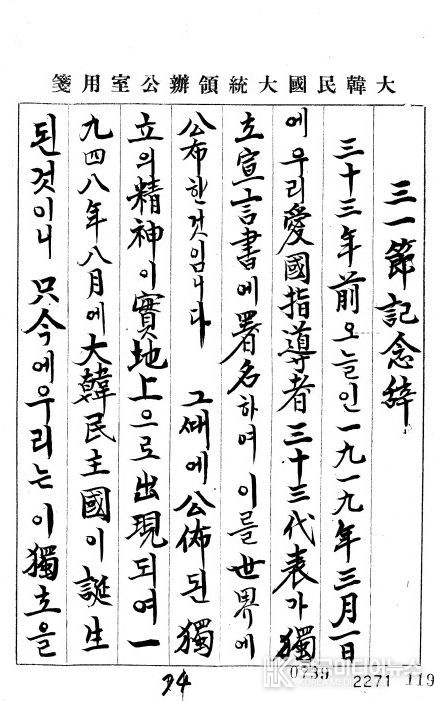 大韓民國大統領辦公室用箋
三一節記念辭
三十三年前오늘인一九一九年三月一日
에우리愛國指導者三十三代表가獨
立宣言書에署名하여이를世界에
公布한것임니다 그때에公佈된獨
立의精神이實地上으로出現되여一
九四八年八月에大韓民主國이誕生
된것이니 只今에우리는이獨立을
94
0739
2271 119